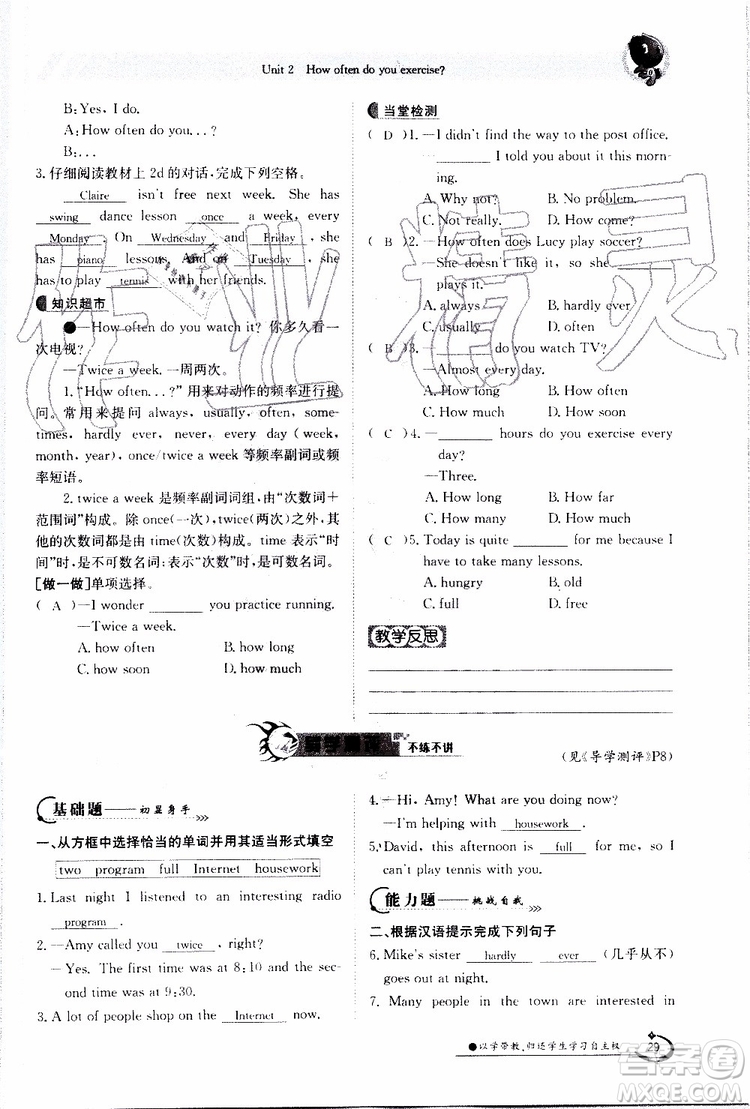 Unit 2 How often do you exercise?
B: Yes, I do.
A: How often do you. . . ?
B: . . .
3. 仔细阅读教材上 2d 的对话,完成下列空格。
Claire isn't free next week. She has
swing dance lesson once a week, every
Monday . On Wednesday and Friday , she
has piano lessons. And on Tuesday , she
has to play tennis with her friends.
知识超市
●—How often do you watch it? 你多久看
一次电视?
—Twice a week. 一周两次。
1. "How often. . . ?" 用来对动作的频率进行提
问。常用来提问 always, usually, often, some-
times, hardly ever, never, every day (week,
month, year), once/twice a week 等频率副词或频
率短语。
2. twice a week 是频率副词词组,由“次数词+
范围词”构成。除 once(一次), twice(两次)之外,其
他的次数词都是由 time(次数)构成。time 表示“时
间”时,是不可数名词;表示“次数”时,是可数名词。
[做一做]单项选择。
( A )—I wonder ________ you practice running.
—Twice a week.
A. how often B. how long
C. how soon D. how much
当堂检测
( D )1. —I didn't find the way to the post office.
—________ I told you about it this morn-
ing.
A. Why not? B. No problem.
C. Not really. D. How come?
( B )2. —How often does Lucy play soccer?
—She doesn't like it, so she ________
plays it.
A. always B. hardly ever
C. usually D. often
( B )3. —________ do you watch TV?
—Almost every day.
A. How long B. How often
C. How much D. How soon
( C )4. —________ hours do you exercise every
day?
—Three.
A. How long B. How far
C. How many D. How much
( C )5. Today is quite ________ for me because I
have to take many lessons.
A. hungry B. old
C. full D. free
教学反思
不练不讲
(见《导学测评》P8)
基础题——初显身手
一、从方框中选择恰当的单词并用其适当形式填空
two program full Internet housework
1. Last night I listened to an interesting radio
program .
2. —Amy called you twice , right?
—Yes. The first time was at 8:10 and the sec-
ond time was at 9:30.
3. A lot of people shop on the Internet now.
4. —Hi, Amy! What are you doing now?
—I'm helping with housework .
5. David, this afternoon is full for me, so I
can't play tennis with you.
能力题——挑战自我
二、根据汉语提示完成下列句子
6. Mike's sister hardly ever (几乎从不)
goes out at night.
7. Many people in the town are interested in
●以学带教,归还学生学习自主权
29
答案圈
MXQE.COM